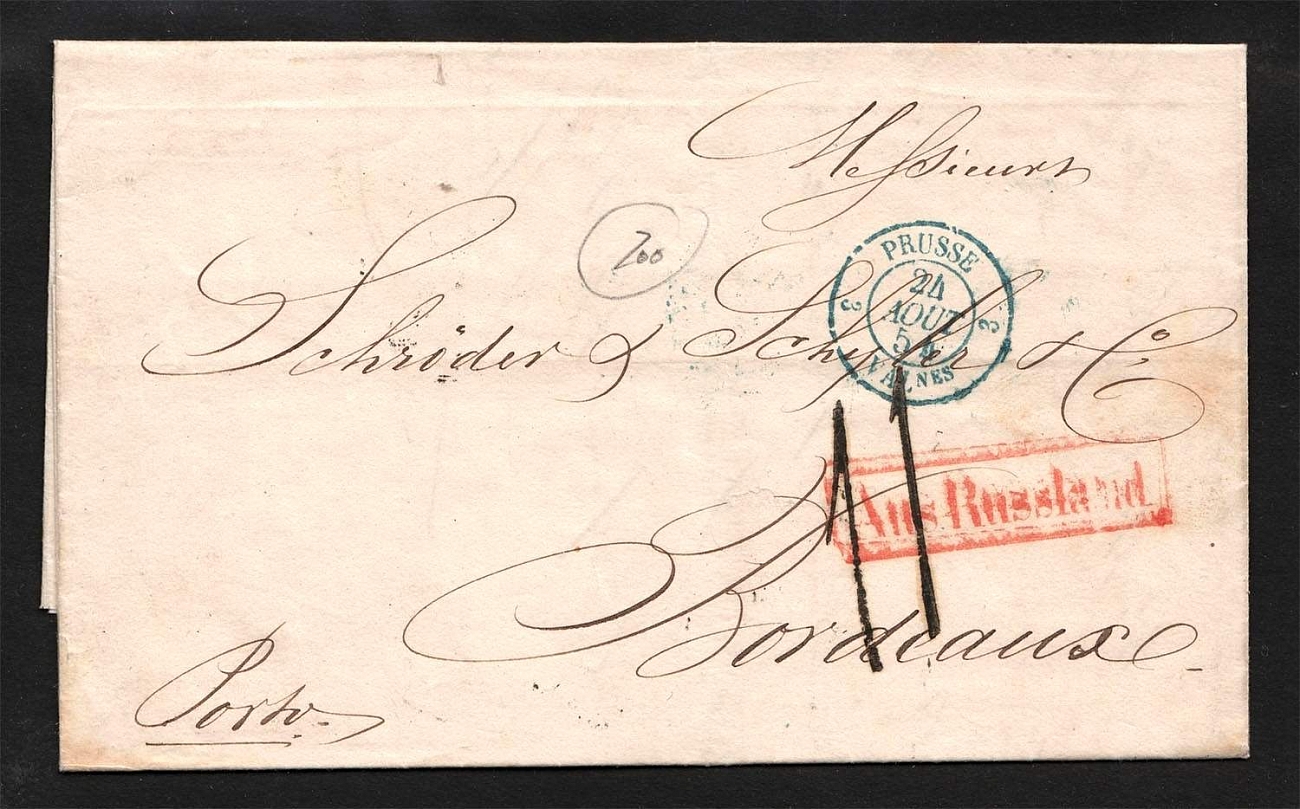 Messieurs
Schröder & Schÿler & Co
200
PRUSSE
24
AOUT
54
VALNES
3 3
11
Aus Russland
Bordeaux
Porto.